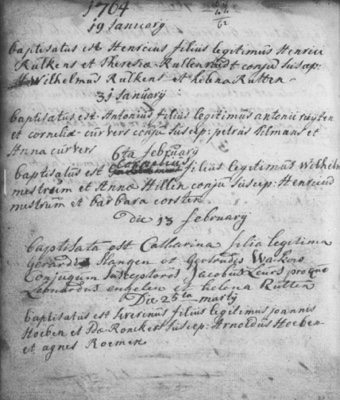 1764
19 January
baptisatus est Henricus filius legitimus Henrici
Rutkens et Theresia Kullenraidt conju susep:
Wilhelmus Rutkens et helena Rutten
31 January
baptisatus est Antonius filius legitimus antonii
et cornelia curvers conju susep: petrus tilmans et
Anna curvers
6ta february
Cornelius
baptisatus est filius legitimus Wilhelmi
mestrum et Anna Hillen conju susep: Henricus
mestrum et barbara corsten
Die 13 february
baptisata est Catharina filia legitima
Gerardi Slangen et Gertrudis
Conjugum susceptores Jacobus Leurs pro quo
Leonardus et helena Rutten
Die 25ta martij
baptisatus est Severinus filius legitimus joannis
Hoeben et Ida Ronckers susep: Arnoldus Hoeben
et agnes Roemen